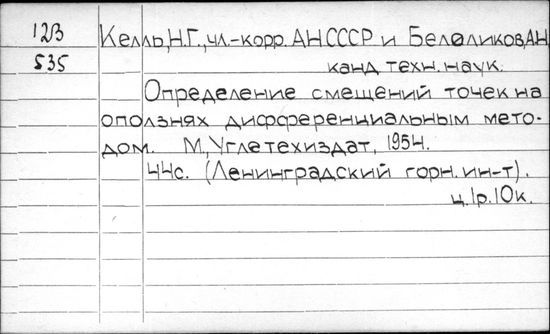 12В
535
Келль, Н.Г., чл.-корр. АН СССР и Белоликов, А.Н.
канд. техн. наук.
Определение смещений точек на
оползнях дифференциальным мето-
дом. М., Углетехиздат, 1954.
44с. (Ленинградский горн. ин-т).
ц. 1р. 10к.